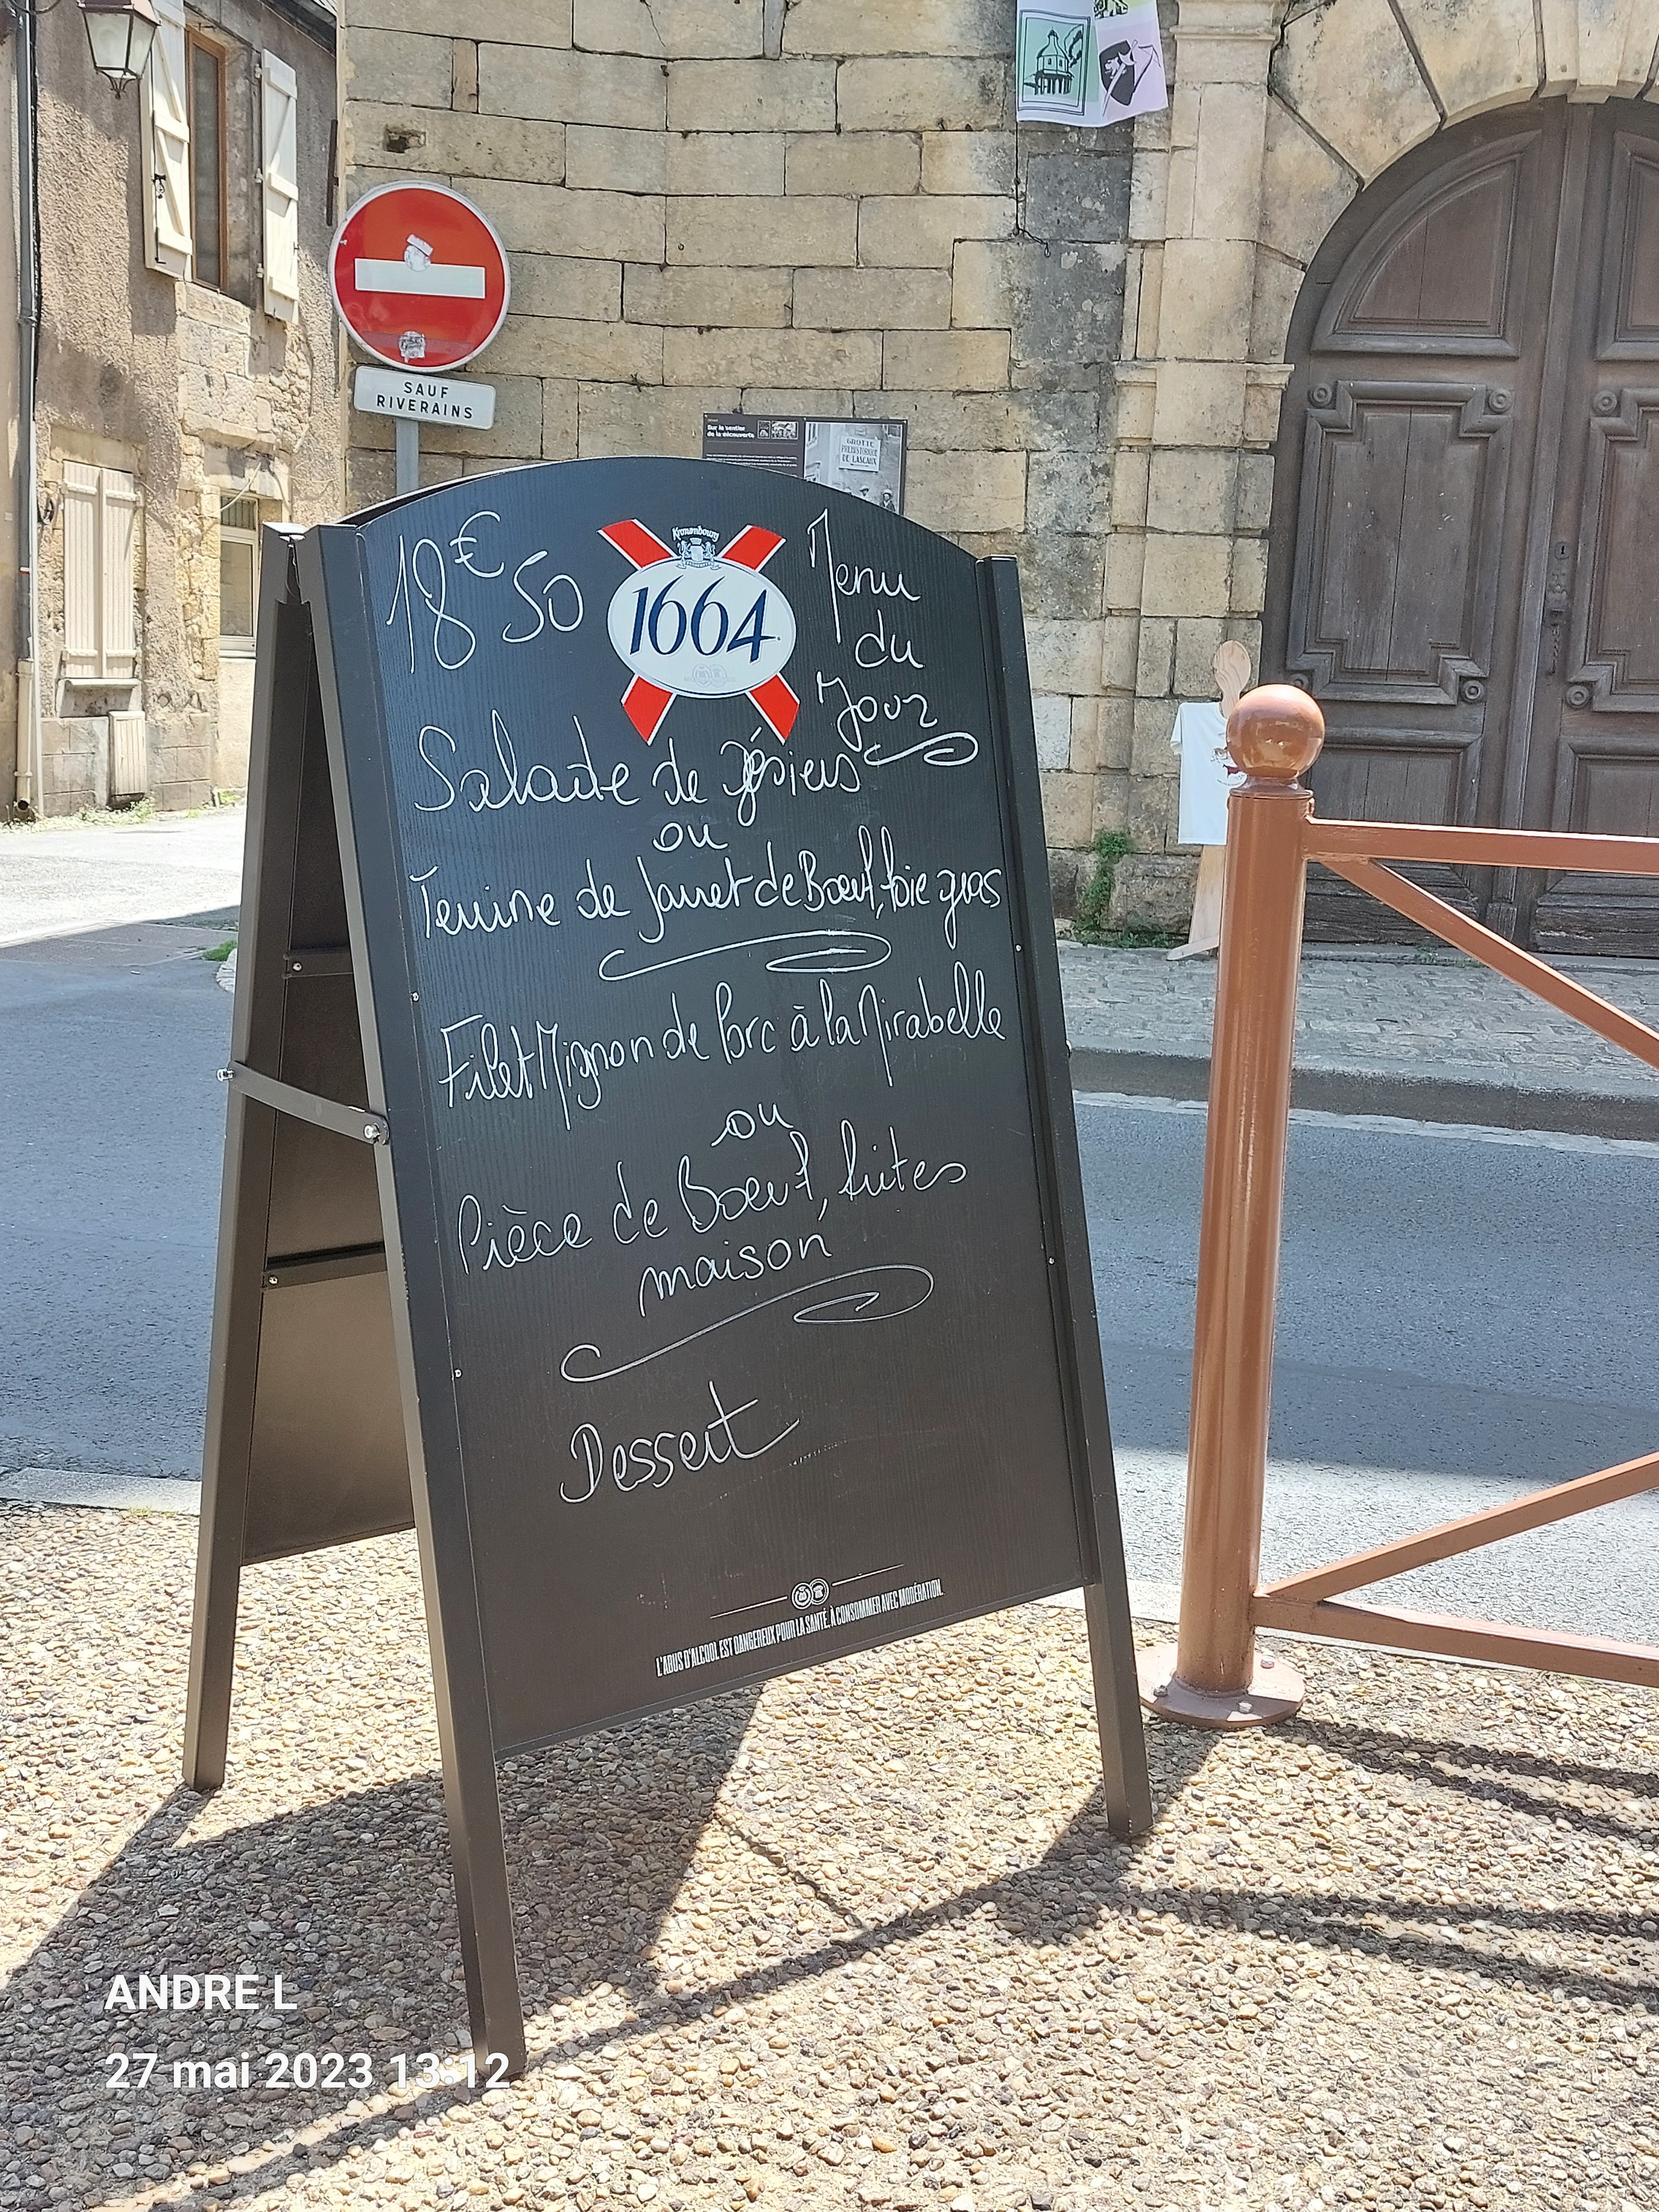 SAUF
RIVERAINS
Sur le sentier
de la découverte
GROTTE
PREHISTORIQUE
DE LASCAUX
18€50
Kronenbourg
1664
Menu
du
Jour
Salade de gésiers
ou
Terrine de Jarret de Bœuf, foie gras
Filet Mignon de Porc à la Mirabelle
ou
Pièce de Bœuf, frites
maison
Dessert
L'ABUS D'ALCOOL EST DANGEREUX POUR LA SANTÉ. À CONSOMMER AVEC MODÉRATION.
ANDRE L
27 mai 2023 13:12